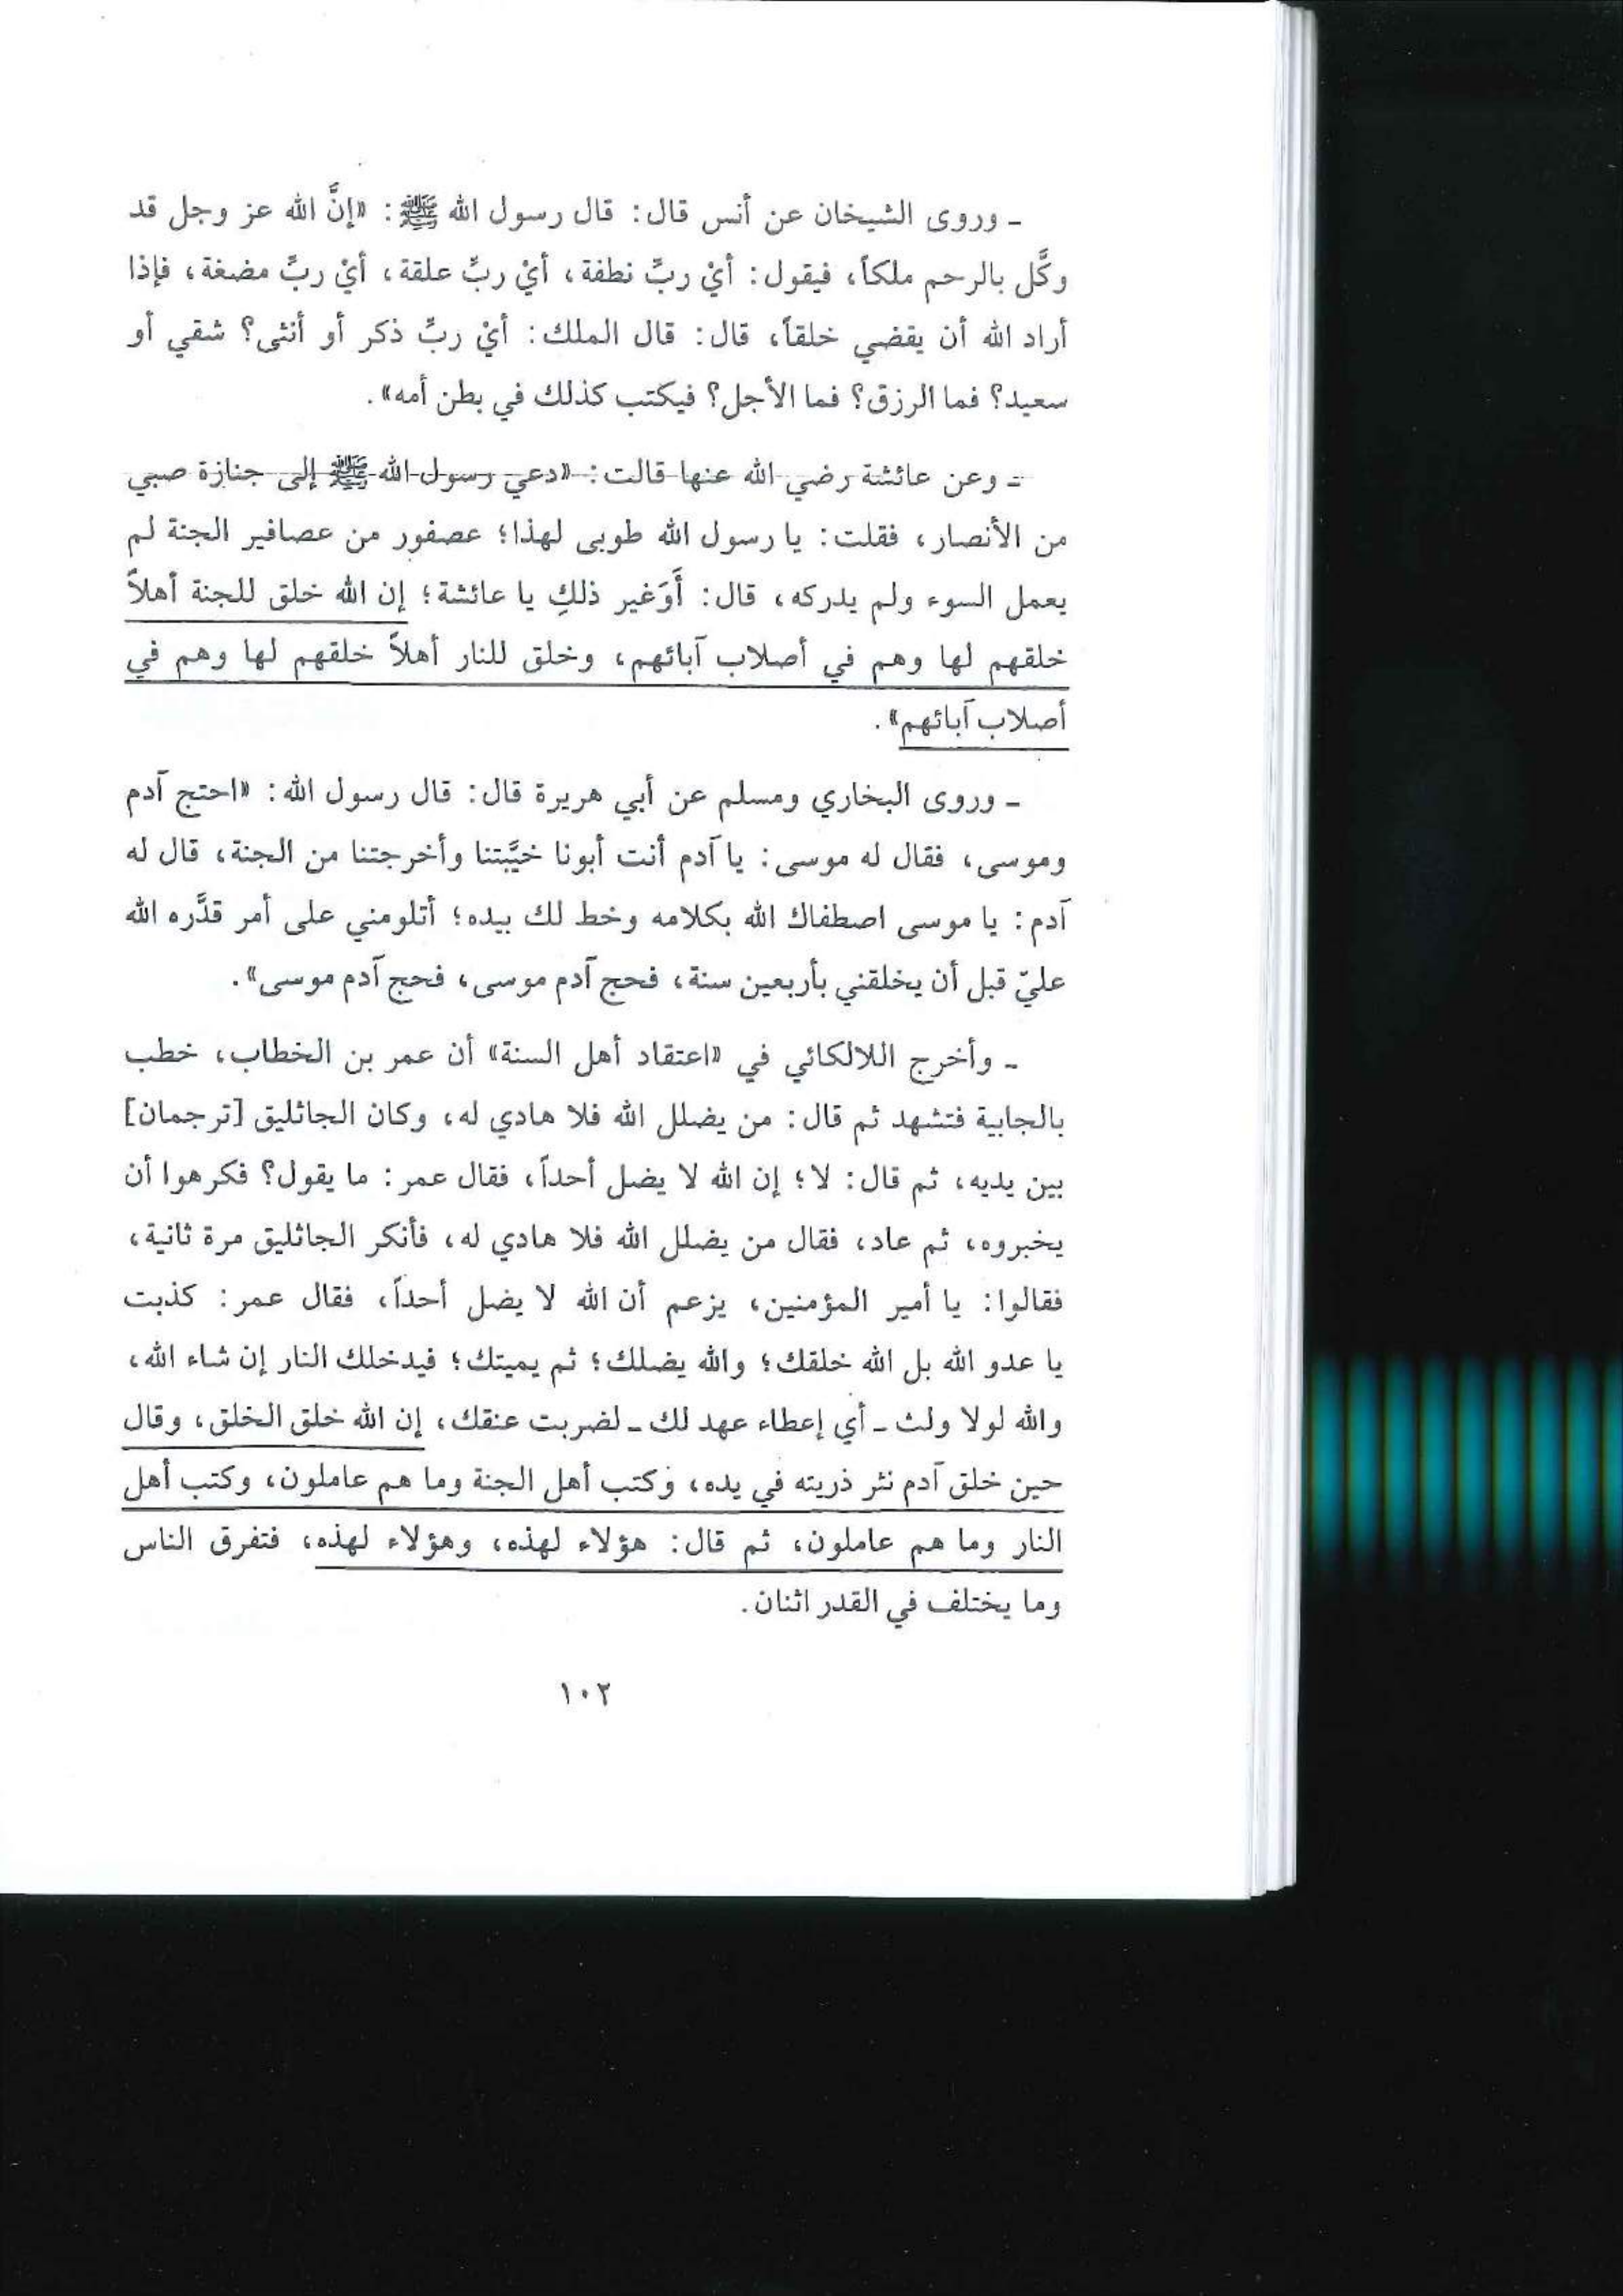 ـ وروى الشيخان عن أنس قال: قال رسول الله ﷺ: «إنَّ الله عز وجل قد
وكَّل بالرحم ملكاً، فيقول: أيْ ربِّ نطفة، أيْ ربِّ علقة، أيْ ربِّ مضغة، فإذا
أراد الله أن يقضي خلقاً، قال: قال الملك: أيْ ربِّ ذكر أو أنثى؟ شقي أو
سعيد؟ فما الرزق؟ فما الأجل؟ فيكتب كذلك في بطن أمه».
ـ وعن عائشة رضي الله عنها قالت: «دعي رسول الله ﷺ إلى جنازة صبي
من الأنصار، فقلت: يا رسول الله طوبى لهذا؛ عصفور من عصافير الجنة لم
يعمل السوء ولم يدركه، قال: أَوَغير ذلكِ يا عائشة؛ إن الله خلق للجنة أهلاً
خلقهم لها وهم في أصلاب آبائهم، وخلق للنار أهلاً خلقهم لها وهم في
أصلاب آبائهم».
ـ وروى البخاري ومسلم عن أبي هريرة قال: قال رسول الله: «احتج آدم
وموسى، فقال له موسى: يا آدم أنت أبونا خيَّبتنا وأخرجتنا من الجنة، قال له
آدم: يا موسى اصطفاك الله بكلامه وخط لك بيده؛ أتلومني على أمر قدَّره الله
عليّ قبل أن يخلقني بأربعين سنة، فحج آدم موسى، فحج آدم موسى».
ـ وأخرج اللالكائي في «اعتقاد أهل السنة» أن عمر بن الخطاب، خطب
بالجابية فتشهد ثم قال: من يضلل الله فلا هادي له، وكان الجاثليق [ترجمان]
بين يديه، ثم قال: لا؛ إن الله لا يضل أحداً، فقال عمر: ما يقول؟ فكرهوا أن
يخبروه، ثم عاد، فقال من يضلل الله فلا هادي له، فأنكر الجاثليق مرة ثانية،
فقالوا: يا أمير المؤمنين، يزعم أن الله لا يضل أحداً، فقال عمر: كذبت
يا عدو الله بل الله خلقك؛ والله يضلك؛ ثم يميتك؛ فيدخلك النار إن شاء الله،
والله لولا ولث ـ أي إعطاء عهد لك ـ لضربت عنقك، إن الله خلق الخلق، وقال
حين خلق آدم نثر ذريته في يده، وكتب أهل الجنة وما هم عاملون، وكتب أهل
النار وما هم عاملون، ثم قال: هؤلاء لهذه، وهؤلاء لهذه، فتفرق الناس
وما يختلف في القدر اثنان.
١٠٢